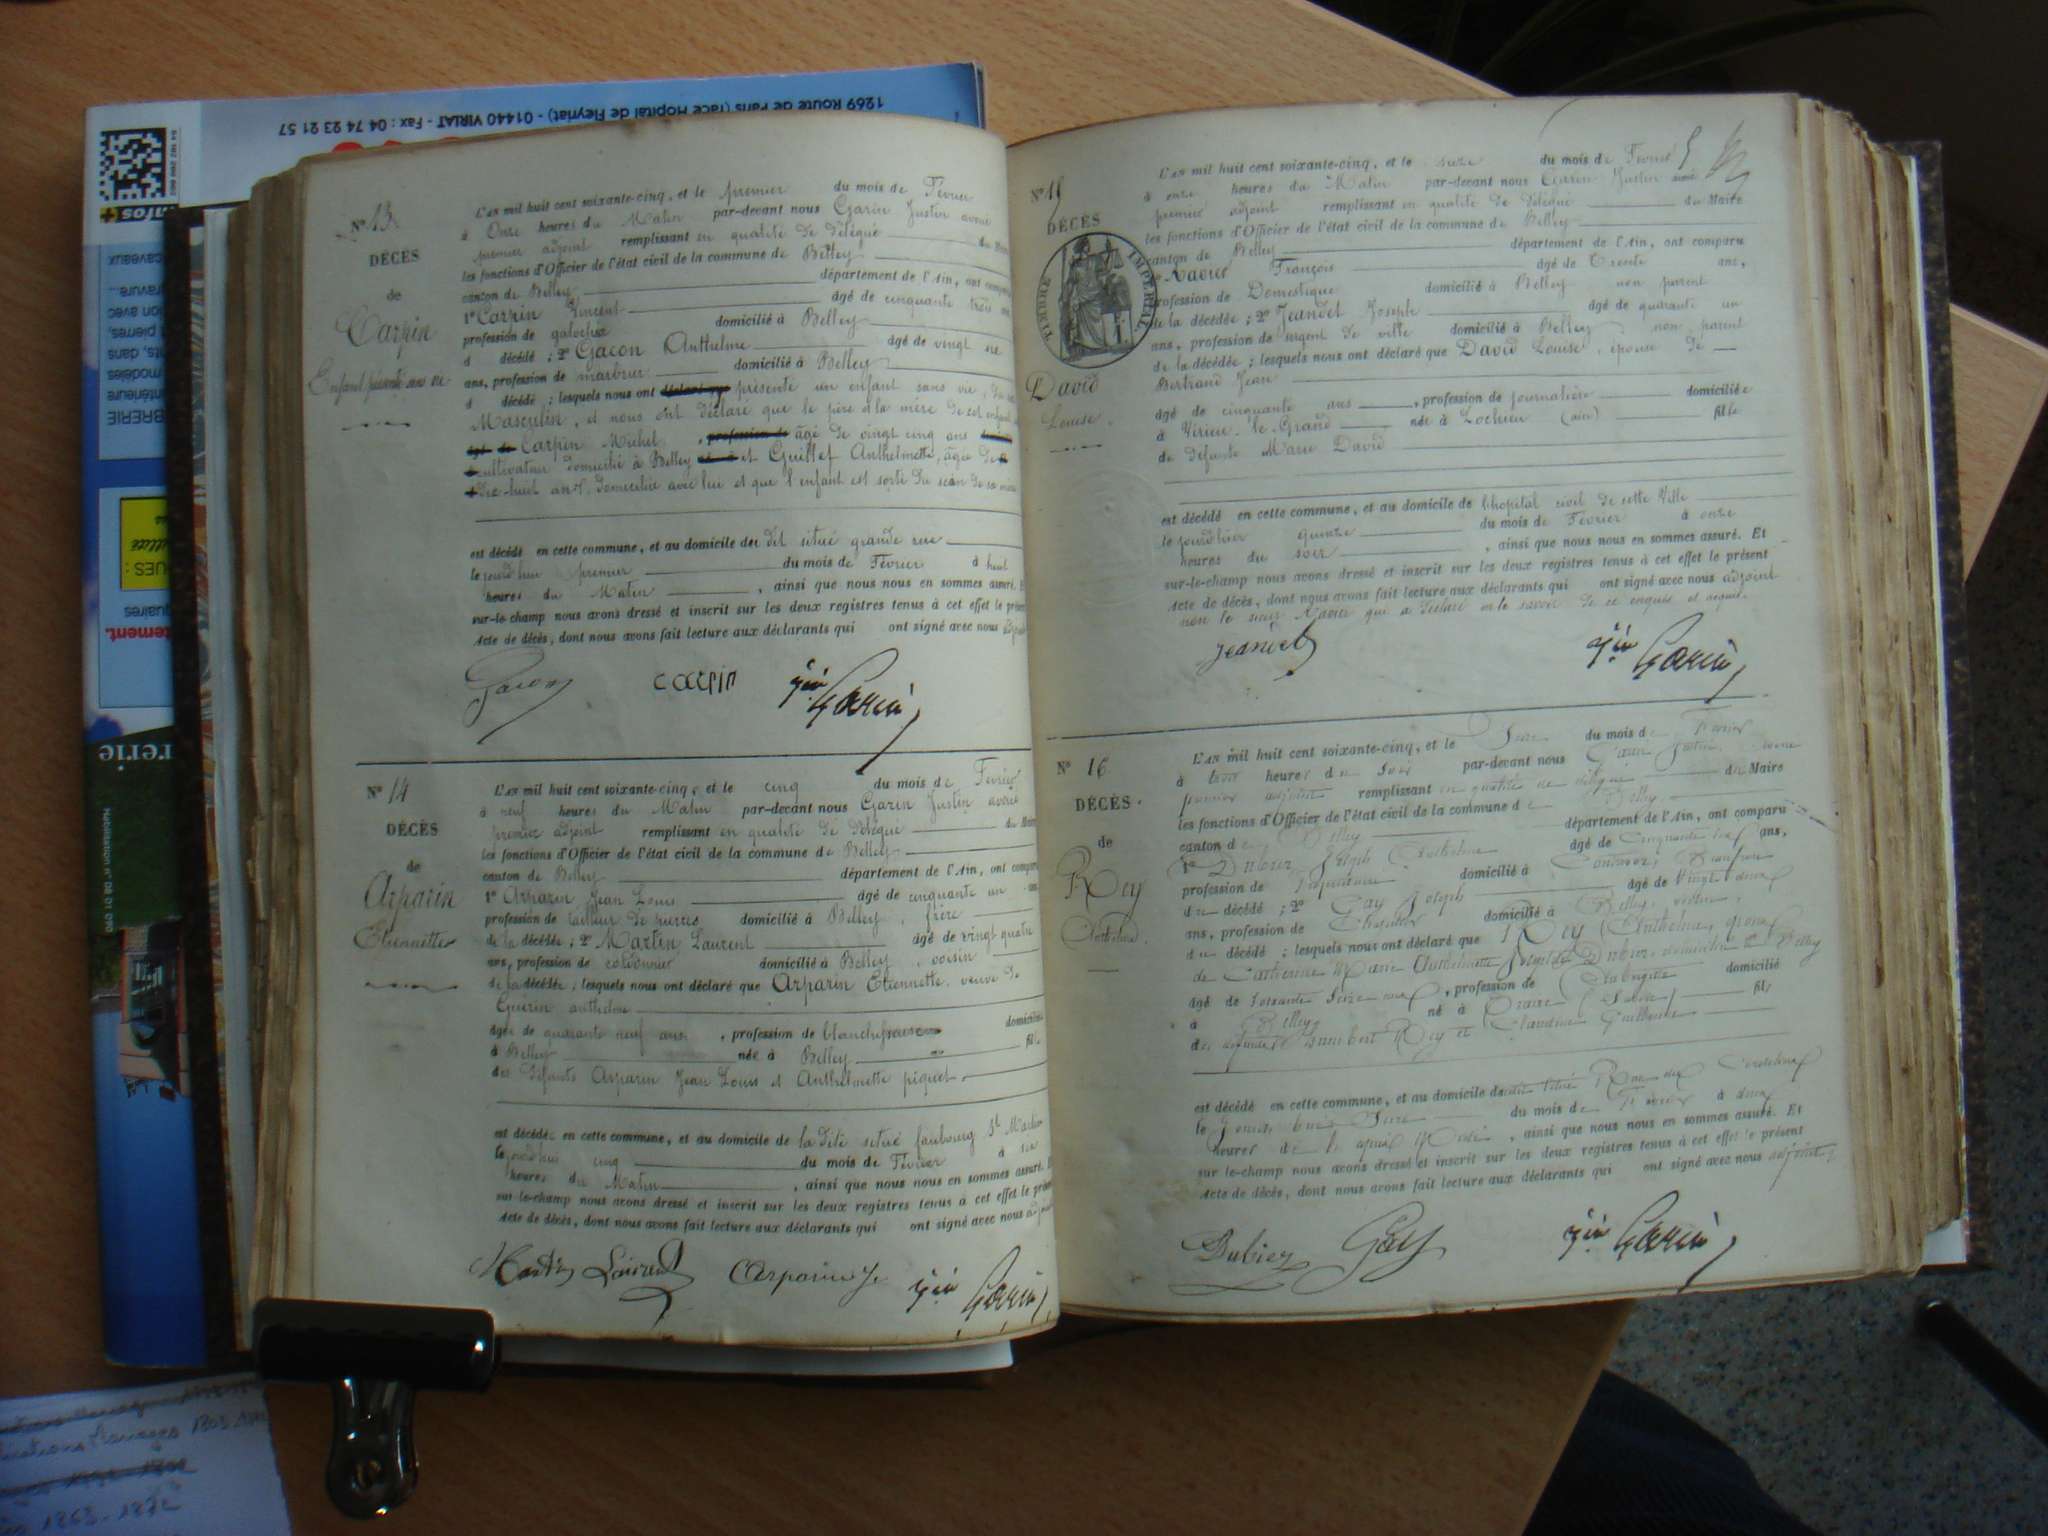 1269 Route de Paris (face Hôpital de Fleyriat) - 01440 VIRIAT - Fax : 04 74 23 21 57
N° 13
DÉCÈS
de
Carrin
L'AN mil huit cent soixante-cinq, et le premier du mois de Février
à Onze heures du Matin par-devant nous Garin Justin avoué
premier adjoint remplissant en qualité de délégué
les fonctions d'Officier de l'état civil de la commune de Belley
canton de Belley département de l'Ain, ont comparu
1° Carrin Vincent âgé de cinquante trois
profession de galochier domicilié à Belley
d décédé ; 2° Gacon Anthelme âgé de vingt
ans, profession de marbrier domicilié à Belley
d décédé ; lesquels nous ont présenté un enfant sans vie, du
Masculin, et nous ont déclaré que le père et la mère de cet enfant
Carrin Michel, âgé de vingt cinq ans
cultivateur domicilié à Belley et Guillet Anthelmette, âgée de
dix-huit ans, domiciliée avec lui et que l'enfant est sorti du sein de sa mère
est décédé en cette commune, et au domicile du dit situé grande rue
le jourd'hui premier du mois de Février à huit
heures du Matin, ainsi que nous nous en sommes assuré. Et
sur-le-champ nous avons dressé et inscrit sur les deux registres tenus à cet effet le présent
Acte de décès, dont nous avons fait lecture aux déclarants qui ont signé avec nous
Gacon carrin Jin Garin
N° 14
DÉCÈS
de
Arparin
Etiennette
L'AN mil huit cent soixante-cinq, et le cinq du mois de Février
à neuf heures du Matin par-devant nous Garin Justin avoué
premier adjoint remplissant en qualité de délégué du Maire
les fonctions d'Officier de l'état civil de la commune de Belley
canton de Belley département de l'Ain, ont comparu
1° Arparin Jean Louis âgé de cinquante un ans
profession de tailleur de pierres domicilié à Belley, frère
de la décédée ; 2° Martin Laurent âgé de vingt quatre
ans, profession de cordonnier domicilié à Belley, voisin
de la décédée ; lesquels nous ont déclaré que Arparin Etiennette, veuve de
Guérin anthelme
âgée de quarante neuf ans, profession de blanchisseuse domiciliée
à Belley née à Belley fille
des défunts Arparin Jean Louis et Anthelmette piquet
est décédée en cette commune, et au domicile de la dite situé faubourg St Martin
le jourd'hui cinq du mois de Février à
heures du Matin, ainsi que nous nous en sommes assuré. Et
sur-le-champ nous avons dressé et inscrit sur les deux registres tenus à cet effet le présent
Acte de décès, dont nous avons fait lecture aux déclarants qui ont signé avec nous
Martin Laurent Arparin Jin Garin
N° 15
DÉCÈS
TIMBRE IMPÉRIAL
David
Louise
L'AN mil huit cent soixante-cinq, et le seize du mois de Février
à onze heures du Matin par-devant nous Garin Justin avoué
premier adjoint remplissant en qualité de délégué du Maire
les fonctions d'Officier de l'état civil de la commune de Belley
canton de Belley département de l'Ain, ont comparu
Xavier François âgé de Trente ans,
profession de Domestique domicilié à Belley non parent
de la décédée ; 2° Jeandet Joseph âgé de quarante un
ans, profession de sergent de ville domicilié à Belley, non parent
de la décédée ; lesquels nous ont déclaré que David Louise, épouse de
Bertrand Jean
âgé de cinquante ans, profession de journalière domiciliée
à Virieu-le-Grand née à Lochieu (ain) fille
de défunte Marie David
est décédé en cette commune, et au domicile de l'hopital civil de cette Ville
le jourd'hier quinze du mois de Février à onze
heures du soir, ainsi que nous nous en sommes assuré. Et
sur-le-champ nous avons dressé et inscrit sur les deux registres tenus à cet effet le présent
Acte de décès, dont nous avons fait lecture aux déclarants qui ont signé avec nous adjoint
non le sieur Xavier qui a déclaré ne le savoir de ce enquis et requis
Jeandet Jin Garin
N° 16
DÉCÈS
de
Rey
Anthelme
L'AN mil huit cent soixante-cinq, et le Seize du mois de Février
à trois heures du Soir par-devant nous Garin Justin, avoué
premier adjoint remplissant en qualité de délégué du Maire
les fonctions d'Officier de l'état civil de la commune de Belley
canton de Belley département de l'Ain, ont comparu
1° Dubiez Joseph Anthelme âgé de Cinquante six ans,
profession de Propriétaire domicilié à Contrevoz, Beaufrère
du décédé ; 2° Gay Joseph âgé de Vingt deux
ans, profession de domicilié à Belley, voisin,
du décédé ; lesquels nous ont déclaré que Rey Anthelme, époux
de Catherine Marie Anthelmette Josephte Dubiez, domicilié à Belley
âgé de Soixante Seize ans, profession de Aubergiste domicilié
à Belley né à fils
des défunts Humbert Rey et Claudine Guillerme
est décédé en cette commune, et au domicile du dit situé Rue des Cordeliers
le Jourd'hui Seize du mois de Février à deux
heures de l'après Midi, ainsi que nous nous en sommes assuré. Et
sur-le-champ nous avons dressé et inscrit sur les deux registres tenus à cet effet le présent
Acte de décès, dont nous avons fait lecture aux déclarants qui ont signé avec nous adjoint
Dubiez Gay Jin Garin